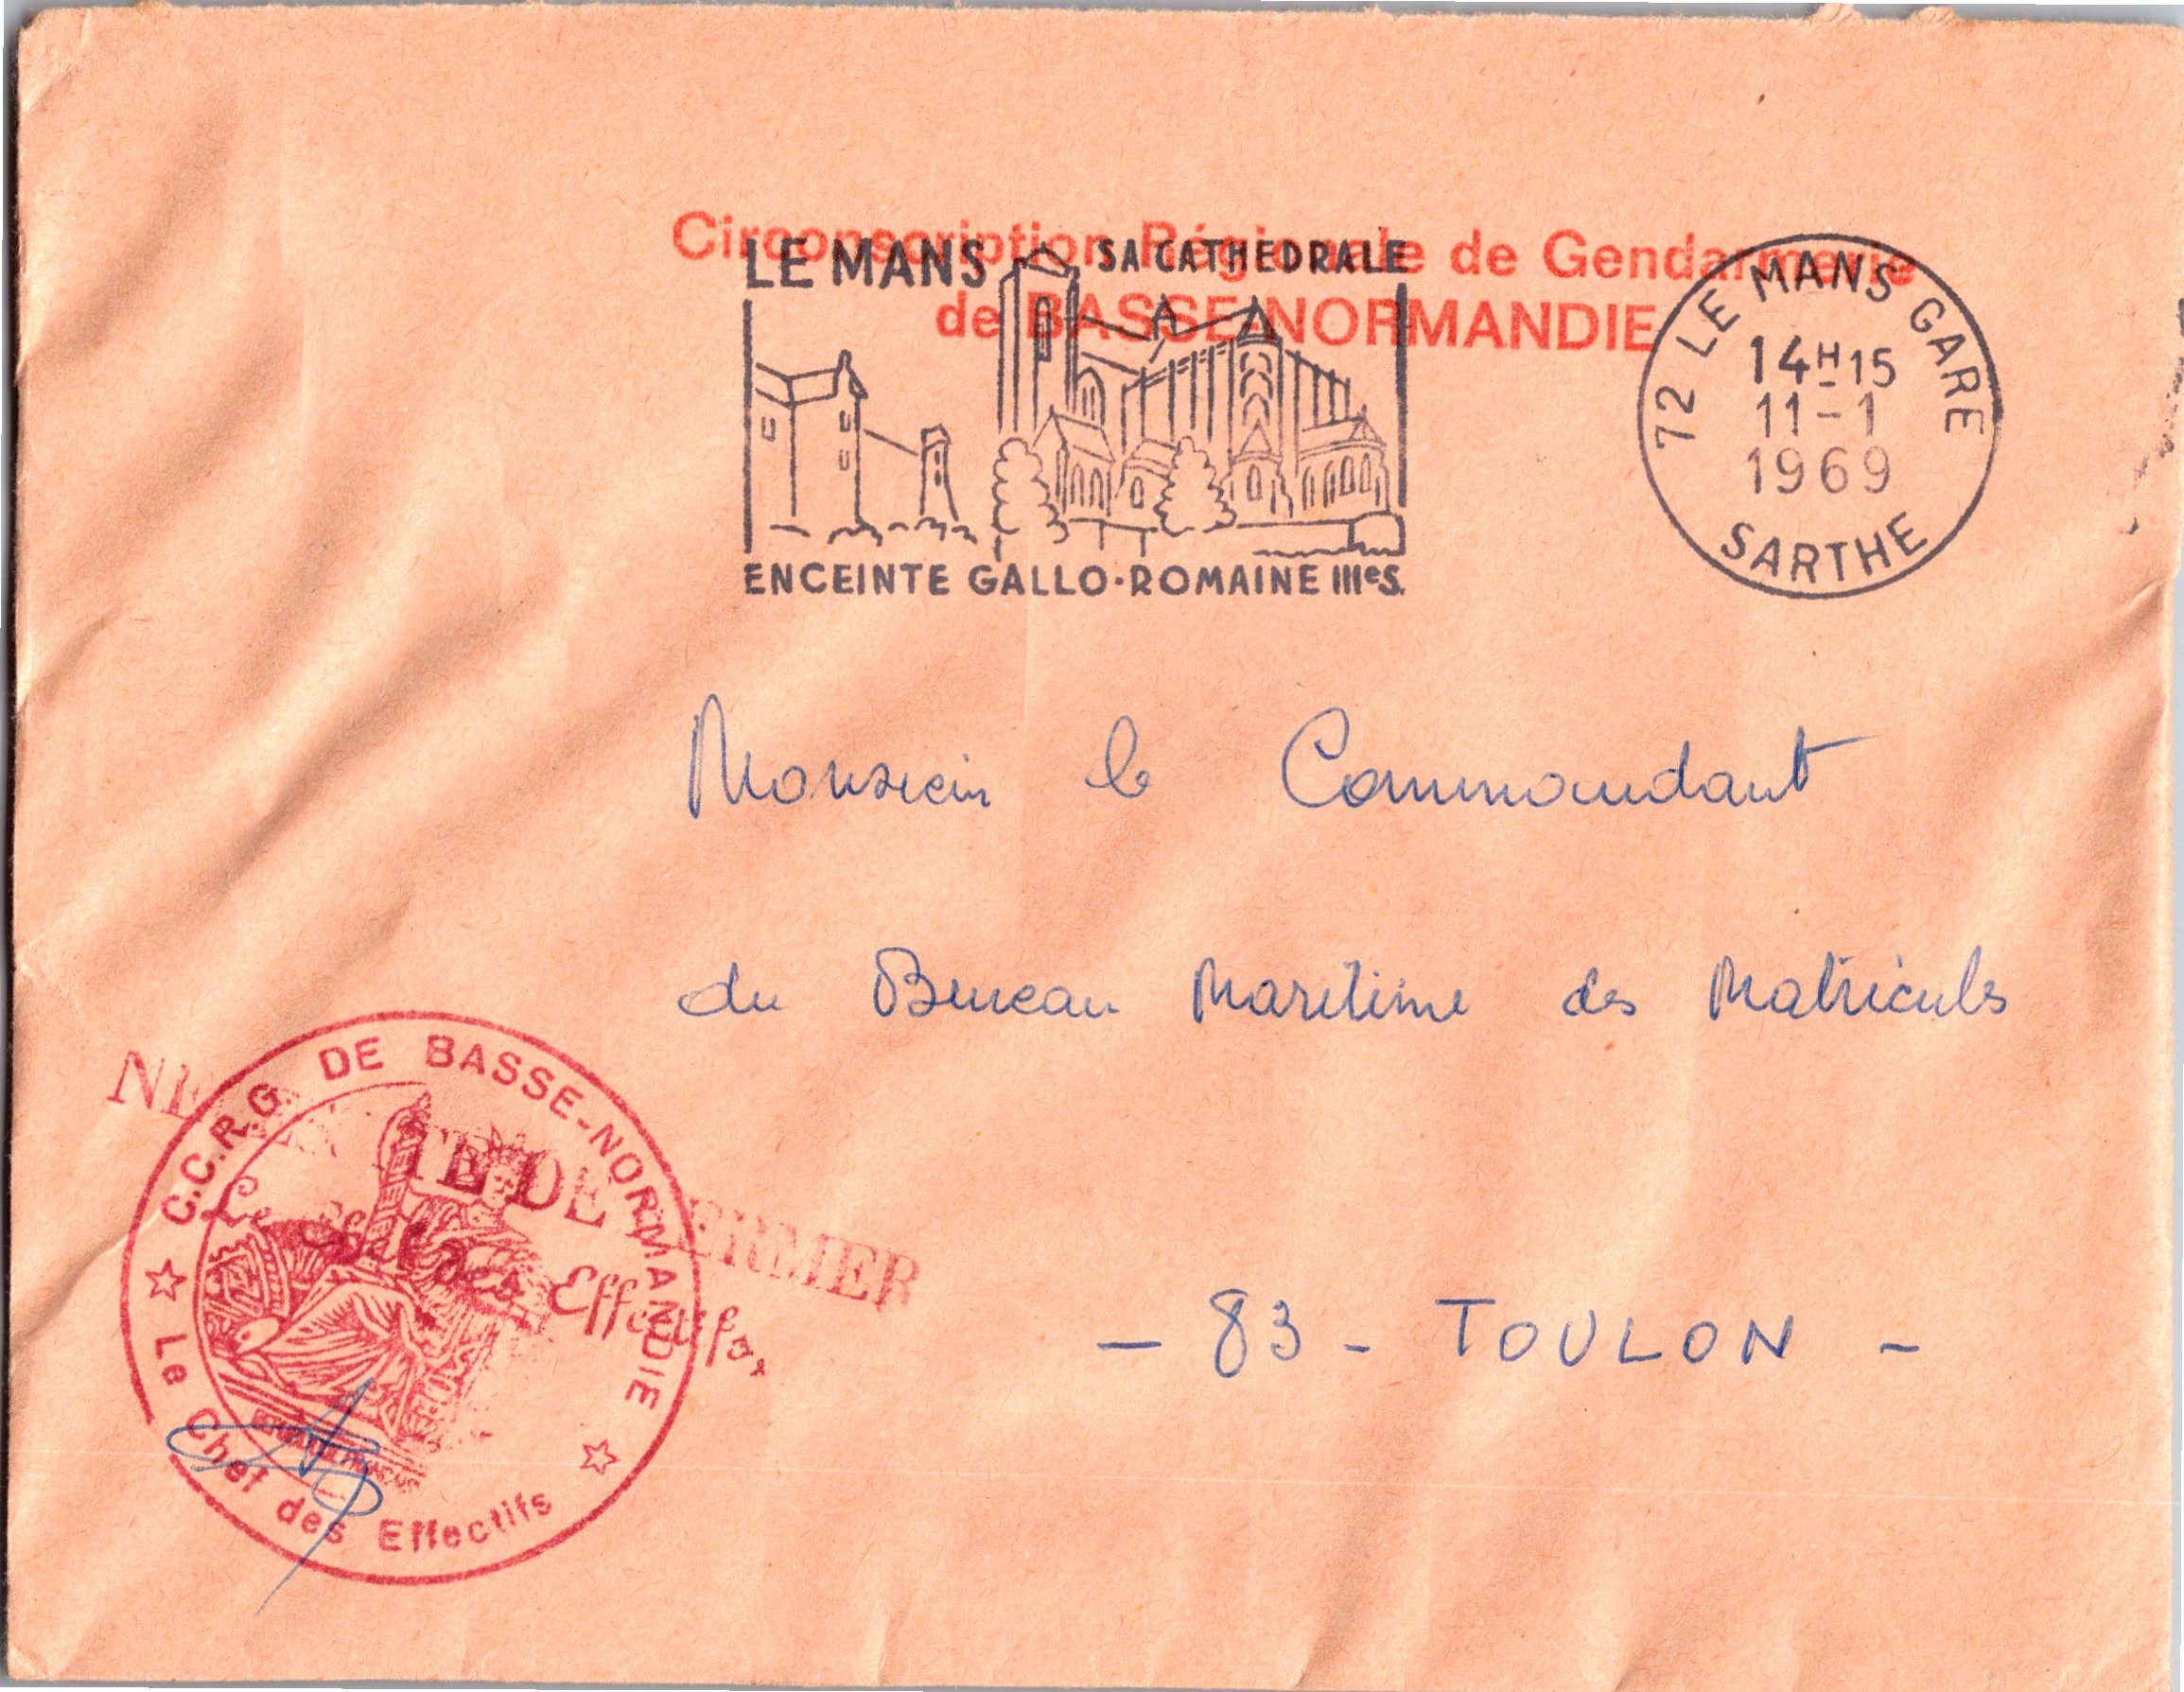 Circonscription Régionale de Gendarmerie
de BASSE-NORMANDIE
LE MANS SA CATHEDRALE
ENCEINTE GALLO-ROMAINE IIIeS.
72 LE MANS GARE
14H15
11-1
1969
SARTHE
Monsieur le Commandant
du Bureau Maritime des Matricules
- 83 - TOULON -
C.C.R.G. DE BASSE-NORMANDIE
DE FERMER
Le Chef des Effectifs,
Le Chef des Effectifs